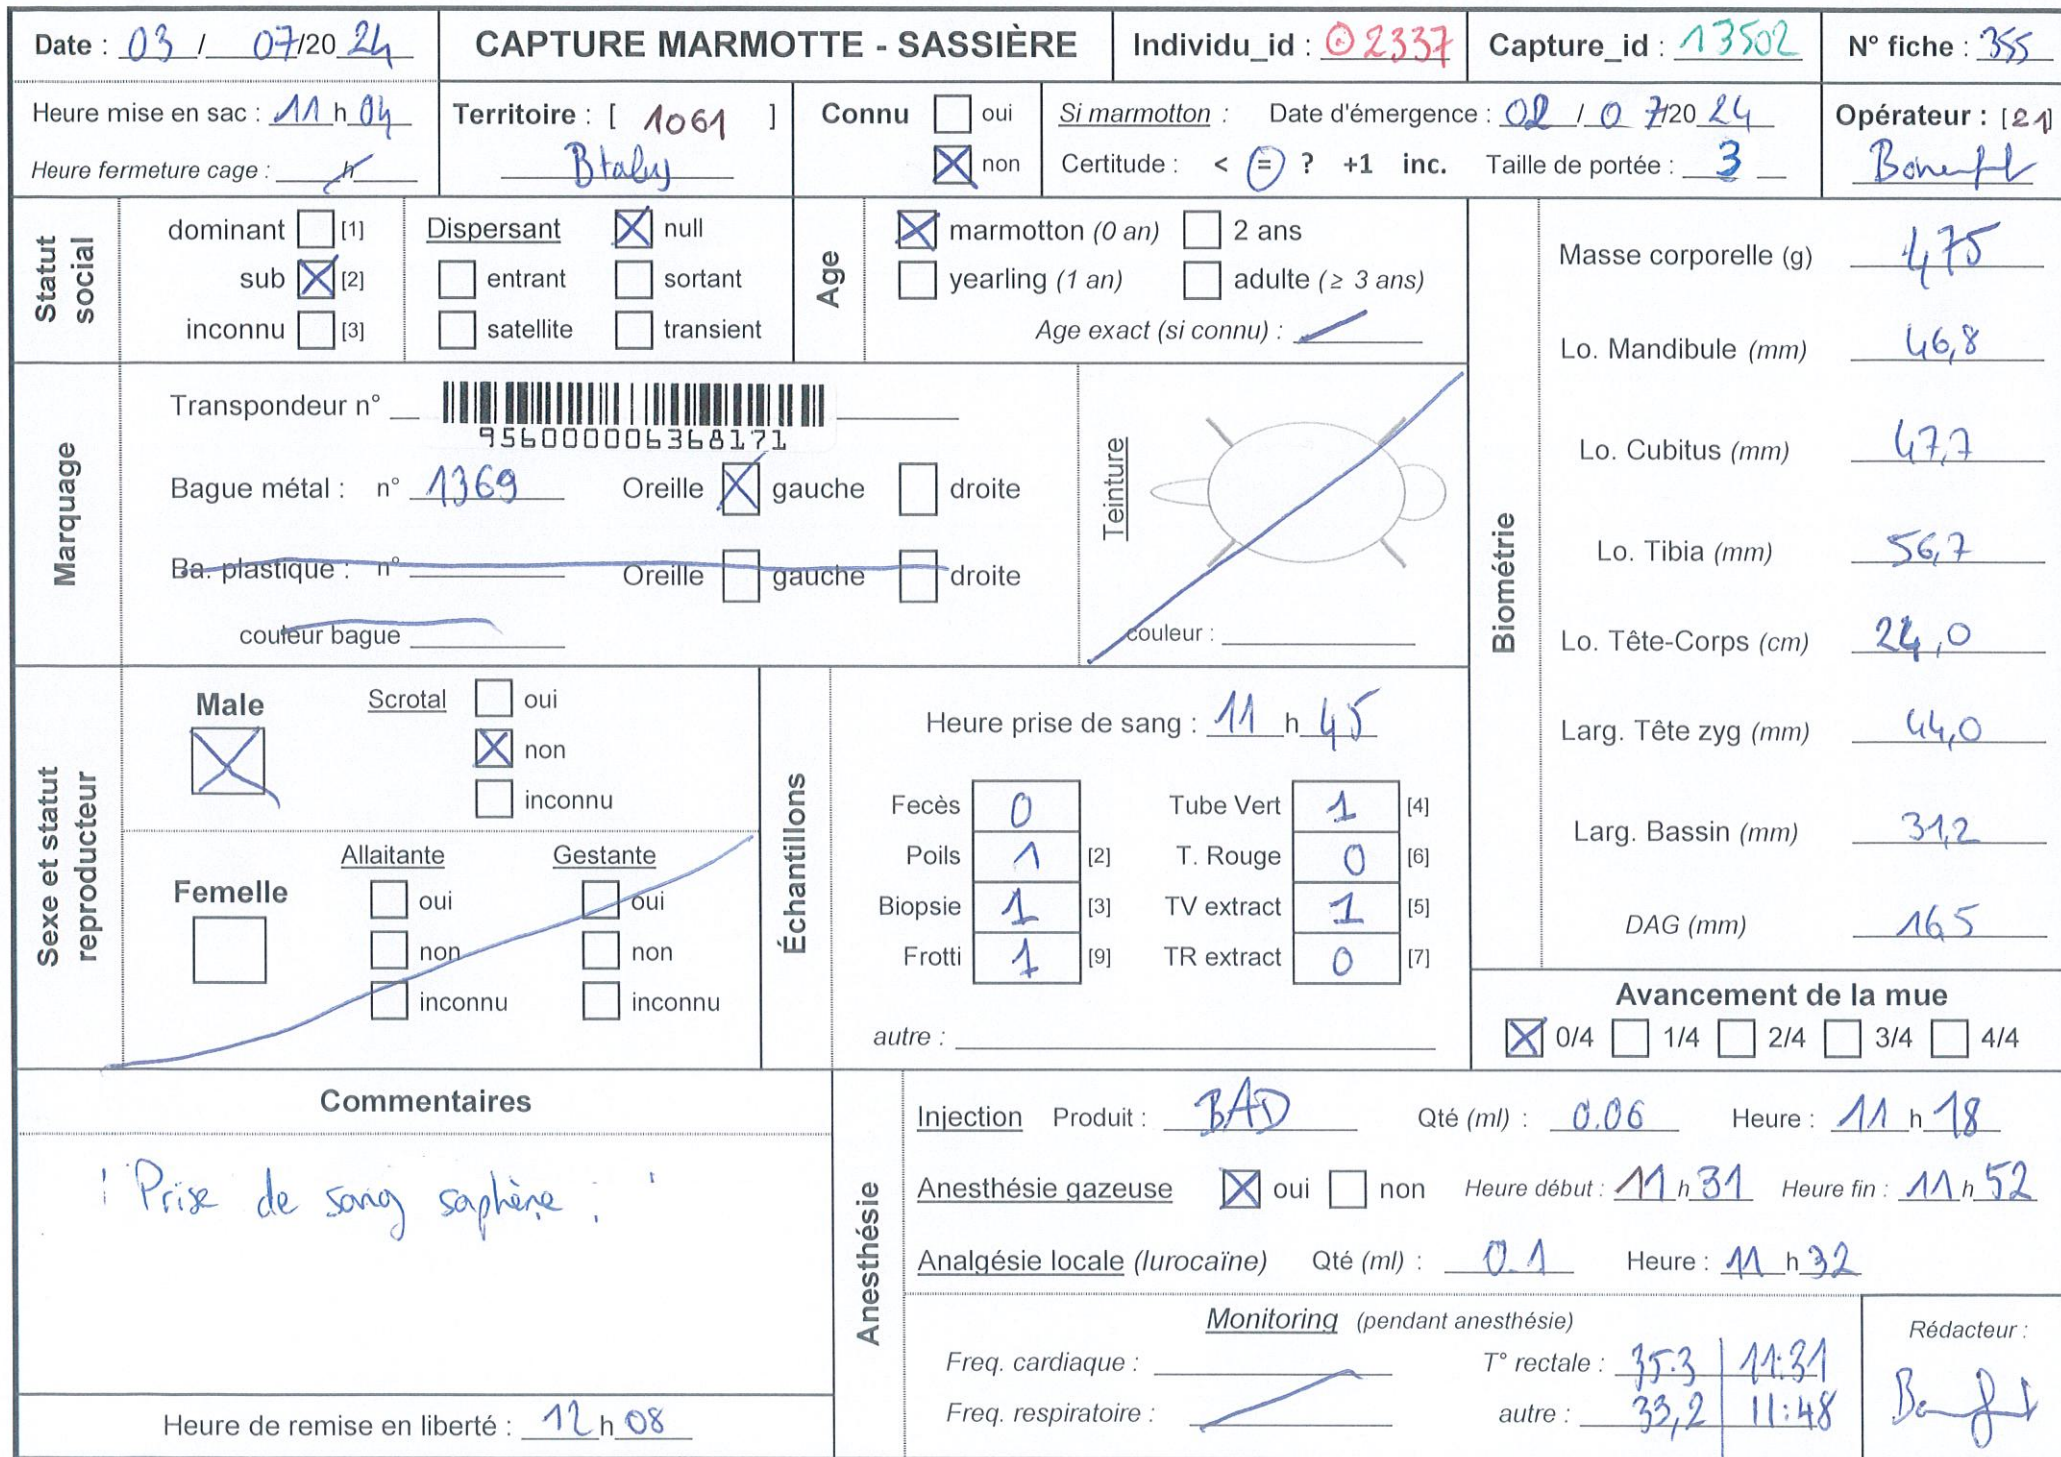 Date : 03 / 07/20 24 CAPTURE MARMOTTE - SASSIÈRE Individu_id : 2337 Capture_id : 13502 N° fiche : 355
Heure mise en sac : 11 h 04 Territoire : [ 1061 ] Connu oui Si marmotton : Date d'émergence : 02 / 07/20 24 Opérateur : [21]
Heure fermeture cage : h Btalus non Certitude : < = ? +1 inc. Taille de portée : 3
Statut social
dominant [1] Dispersant null
sub [2] entrant sortant
inconnu [3] satellite transient
Age
marmotton (0 an) 2 ans
yearling (1 an) adulte (≥ 3 ans)
Age exact (si connu) :
Marquage
Transpondeur n°
956000006368171
Bague métal : n° 1369 Oreille gauche droite
Ba. plastique : n° Oreille gauche droite
couleur bague
Teinture
couleur :
Biométrie
Masse corporelle (g) 475
Lo. Mandibule (mm) 46,8
Lo. Cubitus (mm) 47,7
Lo. Tibia (mm) 56,7
Lo. Tête-Corps (cm) 24,0
Larg. Tête zyg (mm) 44,0
Larg. Bassin (mm) 31,2
DAG (mm) 16,5
Sexe et statut reproducteur
Male Scrotal oui
non
inconnu
Allaitante Gestante
Femelle oui oui
non non
inconnu inconnu
Échantillons
Heure prise de sang : 11 h 45
Fecès 0 Tube Vert 1 [4]
Poils 1 [2] T. Rouge 0 [6]
Biopsie 1 [3] TV extract 1 [5]
Frotti 1 [9] TR extract 0 [7]
autre :
Avancement de la mue
0/4 1/4 2/4 3/4 4/4
Commentaires
! Prise de sang saphène !
Heure de remise en liberté : 12 h 08
Anesthésie
Injection Produit : BAD Qté (ml) : 0.06 Heure : 11 h 18
Anesthésie gazeuse oui non Heure début : 11 h 31 Heure fin : 11 h 52
Analgésie locale (lurocaïne) Qté (ml) : 0.1 Heure : 11 h 32
Monitoring (pendant anesthésie)
Freq. cardiaque : T° rectale : 35.3 11:31
Freq. respiratoire : autre : 33,2 11:48
Rédacteur :